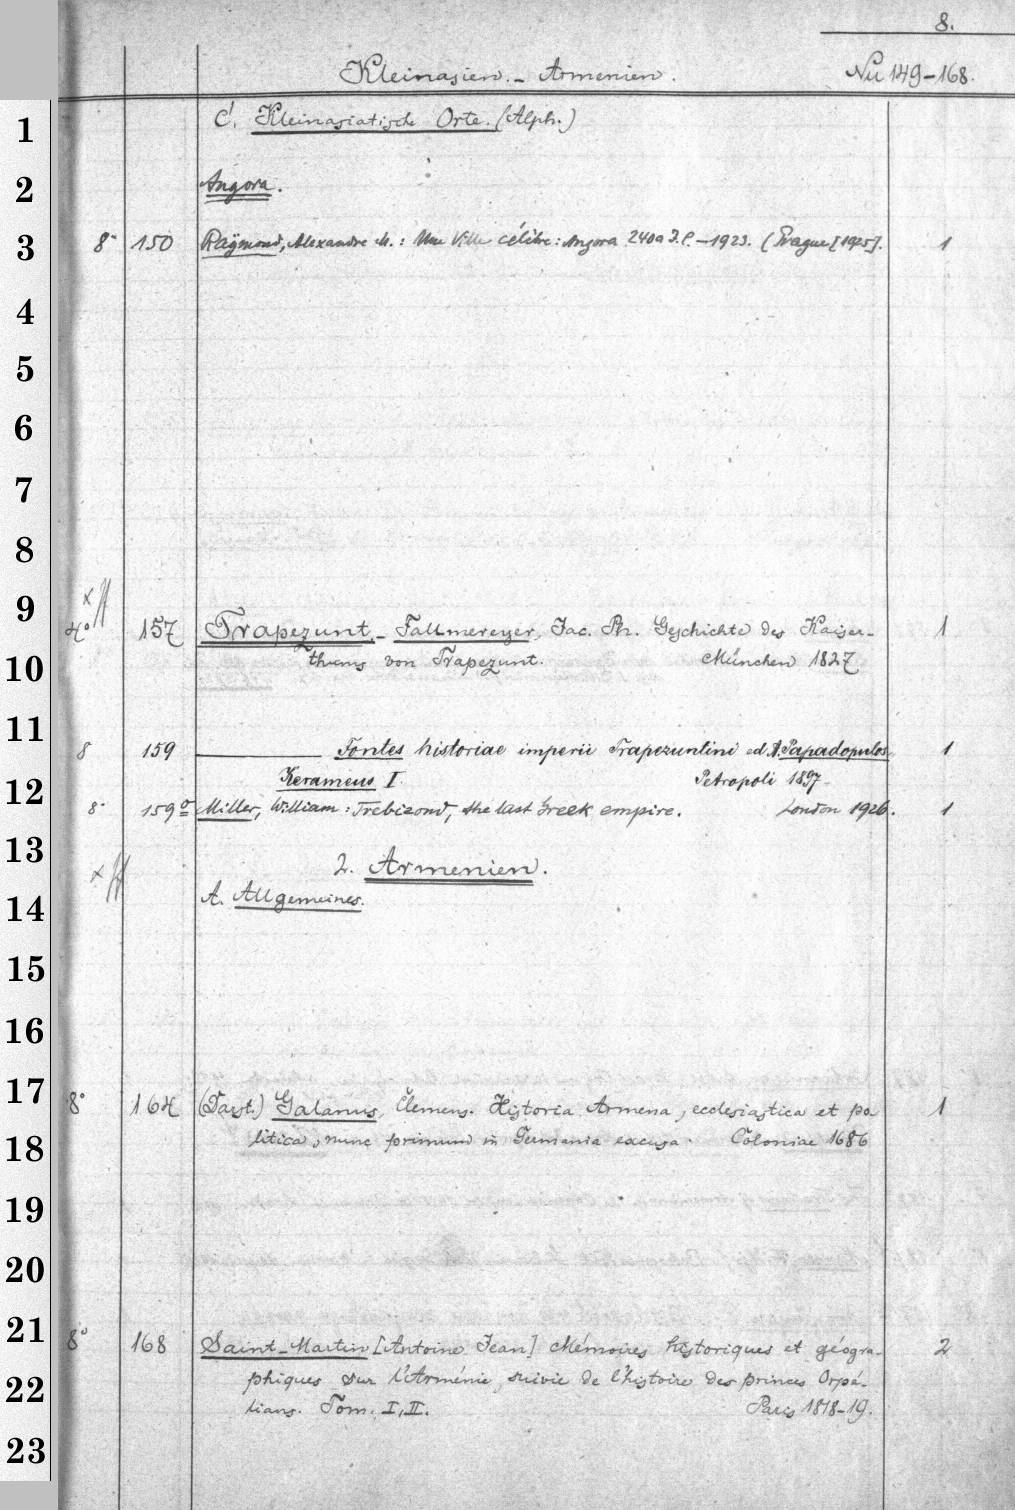 8.
Kleinasien. - Armenien. Nu 149-168.
1 C. Kleinasiatische Orte. (Alph.)
2 Angora.
3 8° 150 Raymond, Alexandre M.: Une Ville célèbre: Angora 2400 J.C. - 1923. (Prague [1925]. 1
4
5
6
7
8
9 x
4° 157 Trapezunt. - Fallmereyer, Jac. Ph. Geschichte des Kaiser- 1
10 thums von Trapezunt. München 1827
11 8 159 Fontes historiae imperii Trapezuntini ed. A. Papadopulos 1
12 Kerameus I. Petropoli 1897
8° 159a Miller, William: Trebizond, the last Greek empire. London 1926. 1
13 x 2. Armenien.
14 A. Allgemeines.
15
16
17 8° 164 Galanus, Clemens. Historia Armena, ecclesiastica et po 1
18 litica, nunc primum in Germania excusa. Coloniae 1686
19
20
21 8° 168 Saint-Martin [Antoine Jean] Mémoires historiques et géogra- 2
22 phiques sur l'Arménie, suivie de l'histoire des princes Orpé-
lians. Tom. I, II. Paris 1818-19.
23